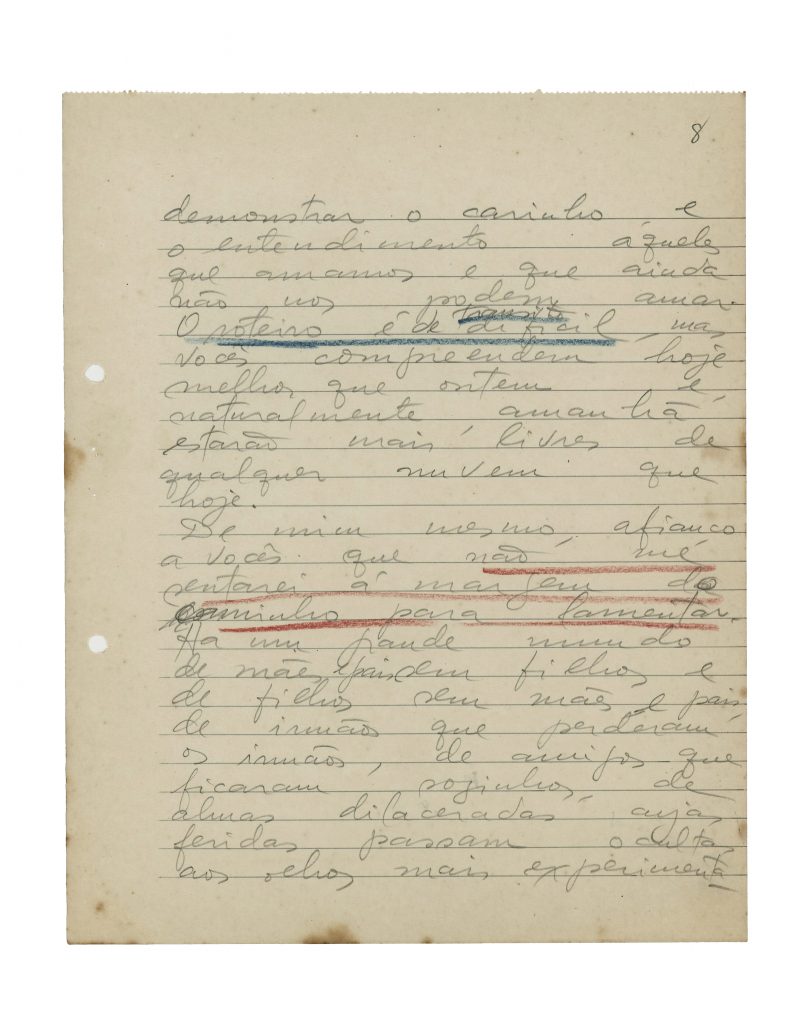 8
demonstrar o carinho e
o entendimento àqueles
que amamos e que ainda
não nos podem amar.
O roteiro é de trânsito difícil, mas
vocês compreendem hoje
melhor que ontem e,
naturalmente amanhã
estarão mais livres de
qualquer nuvem que
hoje.
De mim mesmo, afianço
a vocês que não me
sentarei à margem do
caminho para lamentar.
Há um grande mundo
de mães e pais sem filhos e
de filhos sem mães e pais,
de irmãos que perderam
os irmãos, de amigos que
ficaram sozinhos, de
almas dilaceradas cujas
feridas passam ocultas
aos olhos mais experimenta